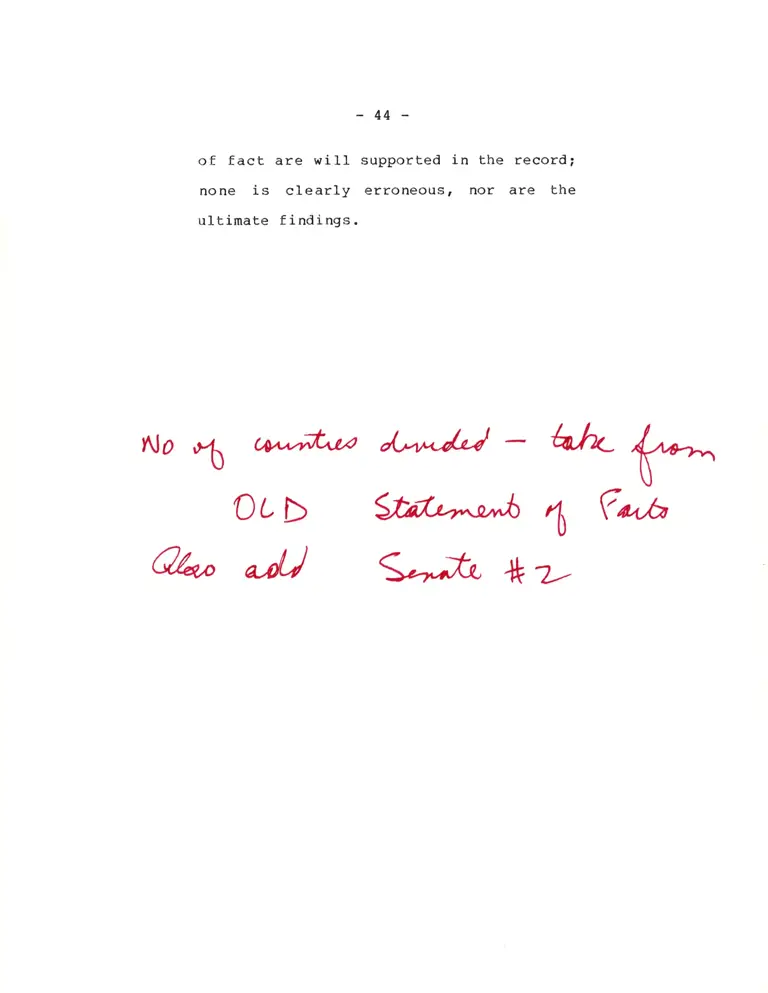 - 44 -
of fact are will supported in the record;
none is clearly erroneous, nor are the
ultimate findings.
No of counties divided — take from
OLD Statement of Facts
Also add Senate # 2